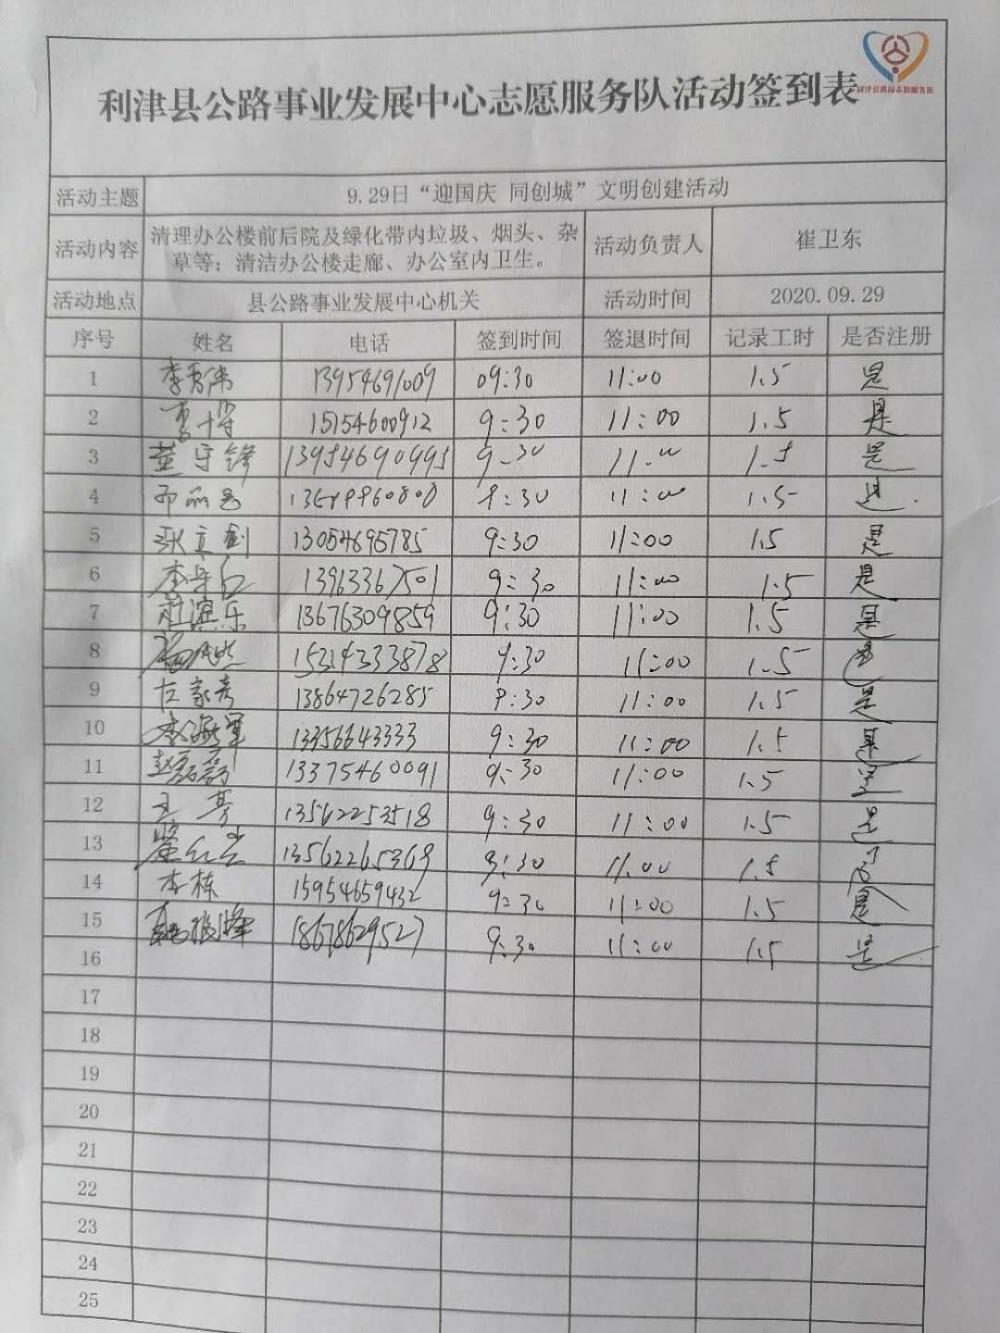 利津县公路事业发展中心志愿服务队活动签到表
利津县公路局志愿服务队
活动主题 9.29日“迎国庆 同创城”文明创建活动
活动内容 清理办公楼前后院及绿化带内垃圾、烟头、杂
草等；清洁办公楼走廊、办公室内卫生。 活动负责人 崔卫东
活动地点 县公路事业发展中心机关 活动时间 2020.09.29
序号 姓名 电话 签到时间 签退时间 记录工时 是否注册
1 13954691009 09:30 11:00 1.5 是
2 15154600912 9:30 11:00 1.5 是
3 董守锋 13954690995 9-30 11.00 1.5 是
4 9:30 11:00 1.5 是
5 张立剑 13054695785 9:30 11:00 1.5 是
6 13963367501 9:30 11:00 1.5 是
7 杜滨乐 13676309859 9:30 11:00 1.5 是
8 15314333878 9:30 11:00 1.5 是
9 左家彦 13864726285 9:30 11:00 1.5 是
10 李海军 13356643333 9:30 11:00 1.5 是
11 赵磊磊 13375460091 9:30 11:00 1.5 是
12 王芳 13562253518 9:30 11:00 1.5 是
13 13562265369 9:30 11.00 1.5 否
14 李栋 15954659432 9:30 11:00 1.5 是
15 18678629527 9:30 11:00 1.5 是
16
17
18
19
20
21
22
23
24
25